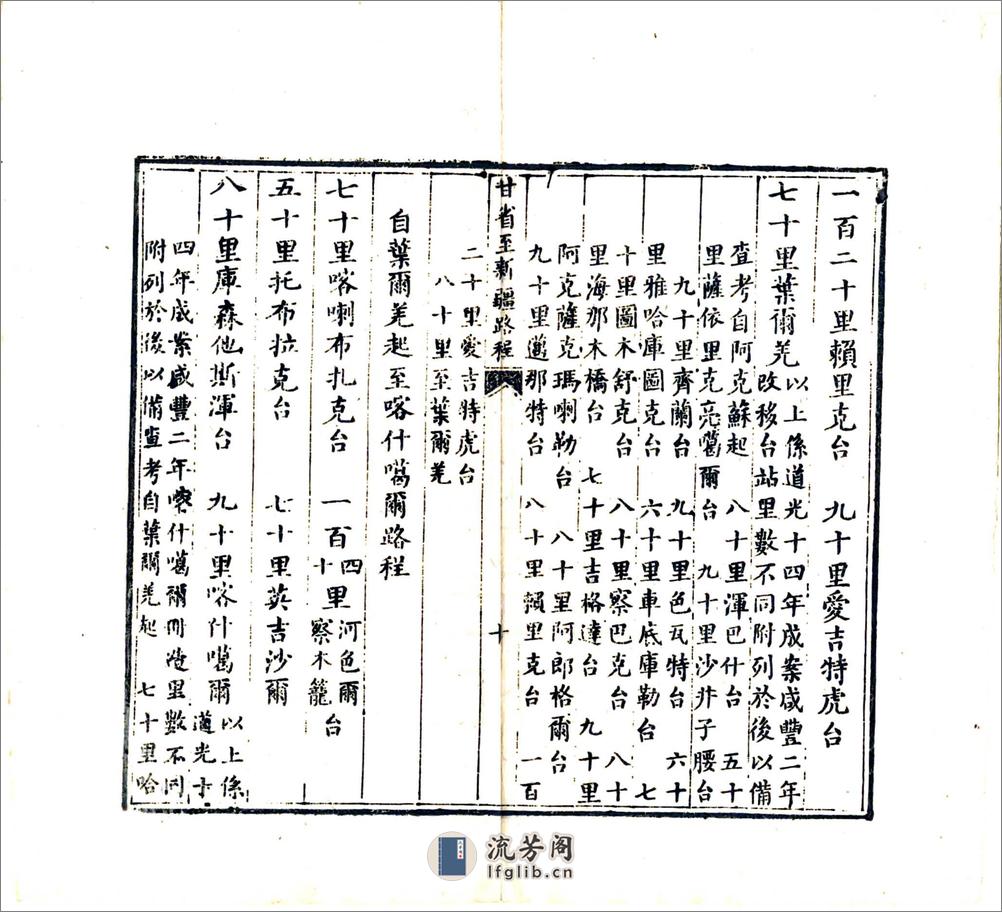 一百二十里賴里克台　九十里愛吉特虎台
七十里葉爾羌
以上係道光十四年成案咸豐二年
改移台站里數不同附列於後以備
查考自阿克蘇起　八十里渾巴什台　五十
里薩依里克亮噶爾台　九十里沙井子腰台
九十里齊蘭台　九十里色瓦特台　六十
里雅哈庫圖克台　六十里車底庫勒台　七
十里圖木舒克台　八十里察巴克台　八十
里海那木橋台　七十里吉格達台　九十里
阿克薩克瑪喇勒台　八十里阿郎格爾台
九十里邁那特台　八十里賴里克台　一百
甘省至新疆路程
十
二十里愛吉特虎台
八十里至葉爾羌
自葉爾羌起至喀什噶爾路程
七十里喀喇布扎克台　一百四十里河色爾察木籠台
五十里托布拉克台　七十里英吉沙爾
八十里庫森他斯渾台　九十里喀什噶爾
以上係
道光十
四年成案咸豐二年喀什噶爾冊造里數不同
附列於後以備查考自葉爾羌起　七十里哈
流芳阁
lfglib.cn